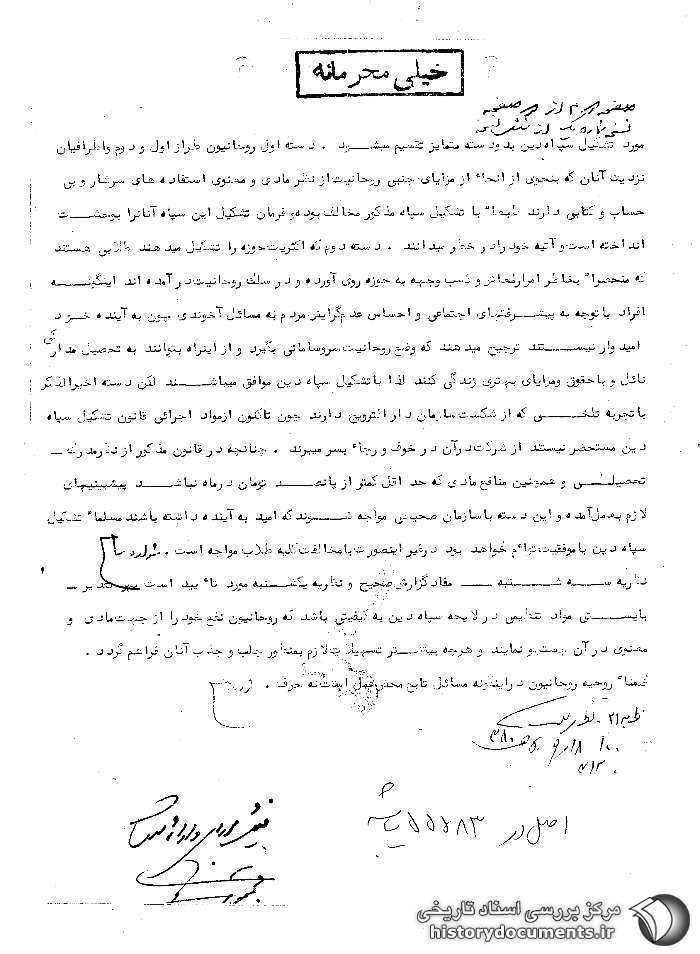 خیلی محرمانه
صفحه از صفحه
نسخه شماره یک از نسخه
مورد تشکیل سپاه دین بدو دسته متمایز تقسیم میشود . دسته اول روحانیون طراز اول و دوم واطرافیان
نزدیک آنان که بنحوی از انحاء از مزایای جنبی روحانیت از نظر مادی و معنوی استفاده های سرشار و بی
حساب و کتابی دارند طبعا" با تشکیل سپاه مذکور مخالف بوده و فرمان تشکیل این سپاه آنانرا بوحشت
انداخته است و آتیه خود را در خطر میدانند . دسته دوم که اکثریت حوزه را تشکیل میدهند طلابی هستند
که منحصرا" بخاطر امرار معاش و کسب وجهه به حوزه روی آورده و در سلک روحانیت در آمده اند اینگونه
افراد با توجه به پیشرفتهای اجتماعی و احساس عدم گرایش مردم به مسائل آخوندی چون به آینده خود
امیدوار نیستند ترجیح میدهند که وضع روحانیت سروسامانی بگیرد و از اینراه بتوانند به تحصیل مدارکی
نائل و با حقوق ومزایای بهتری زندگی کنند لذا با تشکیل سپاه دین موافق میباشند لکن دسته اخیرالذکر
با تجربه تلخی که از شکست سازمان دارالترویج دارند چون تاکنون ازمواد اجرائی قانون تشکیل سپاه
دین مستحضر نیستند از شرکت در آن در خوف و رجاء بسر میبرند . چنانچه در قانون مذکور از نظر مدرک
تحصیلی و همچنین منافع مادی که حد اقل کمتر از پانصد تومان در ماه نباشد پیشبینیهای
لازم بعمل آمده و این دسته با سازمان صحیحی مواجه شوند که امید به آینده داشته باشند مسلما" تشکیل
سپاه دین با موفقیت توأم خواهد بود در غیر اینصورت با مخالفت کلیه طلاب مواجه است .
نظریه سه شنبه – مفاد گزارش صحیح و نظریه یکشنبه مورد تأیید است
بایستی مواد تنظیمی در لایحه سپاه دین به کیفیتی باشد که روحانیون نفع خود را از جهت مادی و
معنوی در آن جستجو نمایند و هرچه بیشتر تسهیلات لازم بمنظور جلب و جذب آنان فراهم گردد .
ضمنا" روحیه روحانیون در اینگونه مسائل تابع محض عمل است نه حرف .
اصل در ۵۵۷۸۳
مرکز بررسی اسناد تاریخی
historydocuments.ir